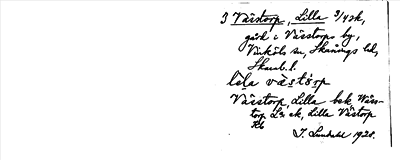 3 Värstorp, Lilla 3/4 sk,
gård i Värstorps by,
Vinköls sn, Skånings hd,
Skarab. l.
lila västorp
Värstorp, Lilla bek Wärs-
torp L:a ek, Lilla Värstorp
Rb
J. Lundahl 1920.